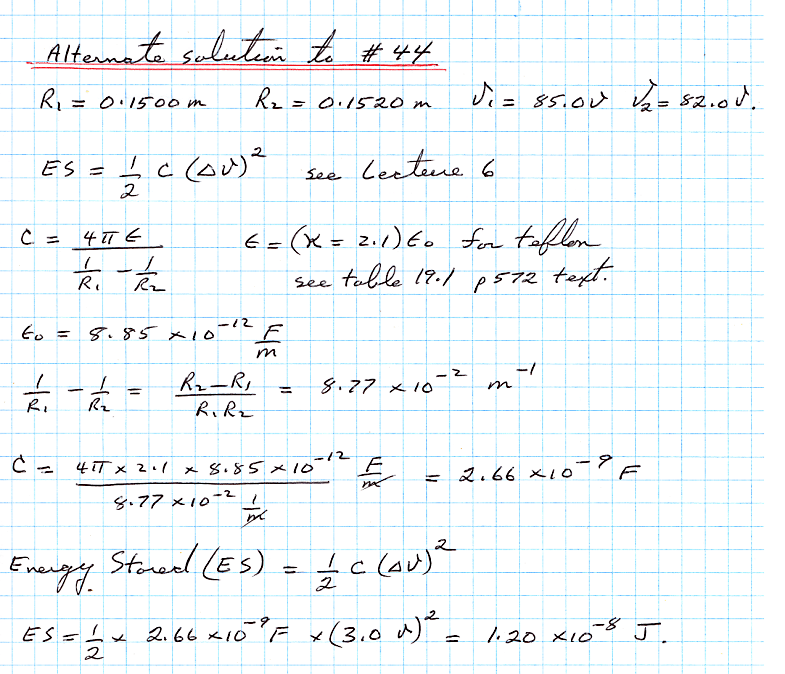 Alternate solution to # 44
R₁ = 0.1500 m R₂ = 0.1520 m V₁ = 85.0 V V₂ = 82.0 V.
ES = 1/2 C (ΔV)² see Lecture 6
C = 4π ϵ / (1/R₁ - 1/R₂) ϵ = (κ = 2.1) ϵ₀ for teflon
see table 19.1 p 572 text.
ϵ₀ = 8.85 × 10⁻¹² F/m
1/R₁ - 1/R₂ = (R₂ - R₁)/(R₁ R₂) = 8.77 × 10⁻² m⁻¹
C = (4π × 2.1 × 8.85 × 10⁻¹² F/m) / (8.77 × 10⁻² 1/m) = 2.66 × 10⁻⁹ F
Energy Stored (ES) = 1/2 C (ΔV)²
ES = 1/2 × 2.66 × 10⁻⁹ F × (3.0 V)² = 1.20 × 10⁻⁸ J.